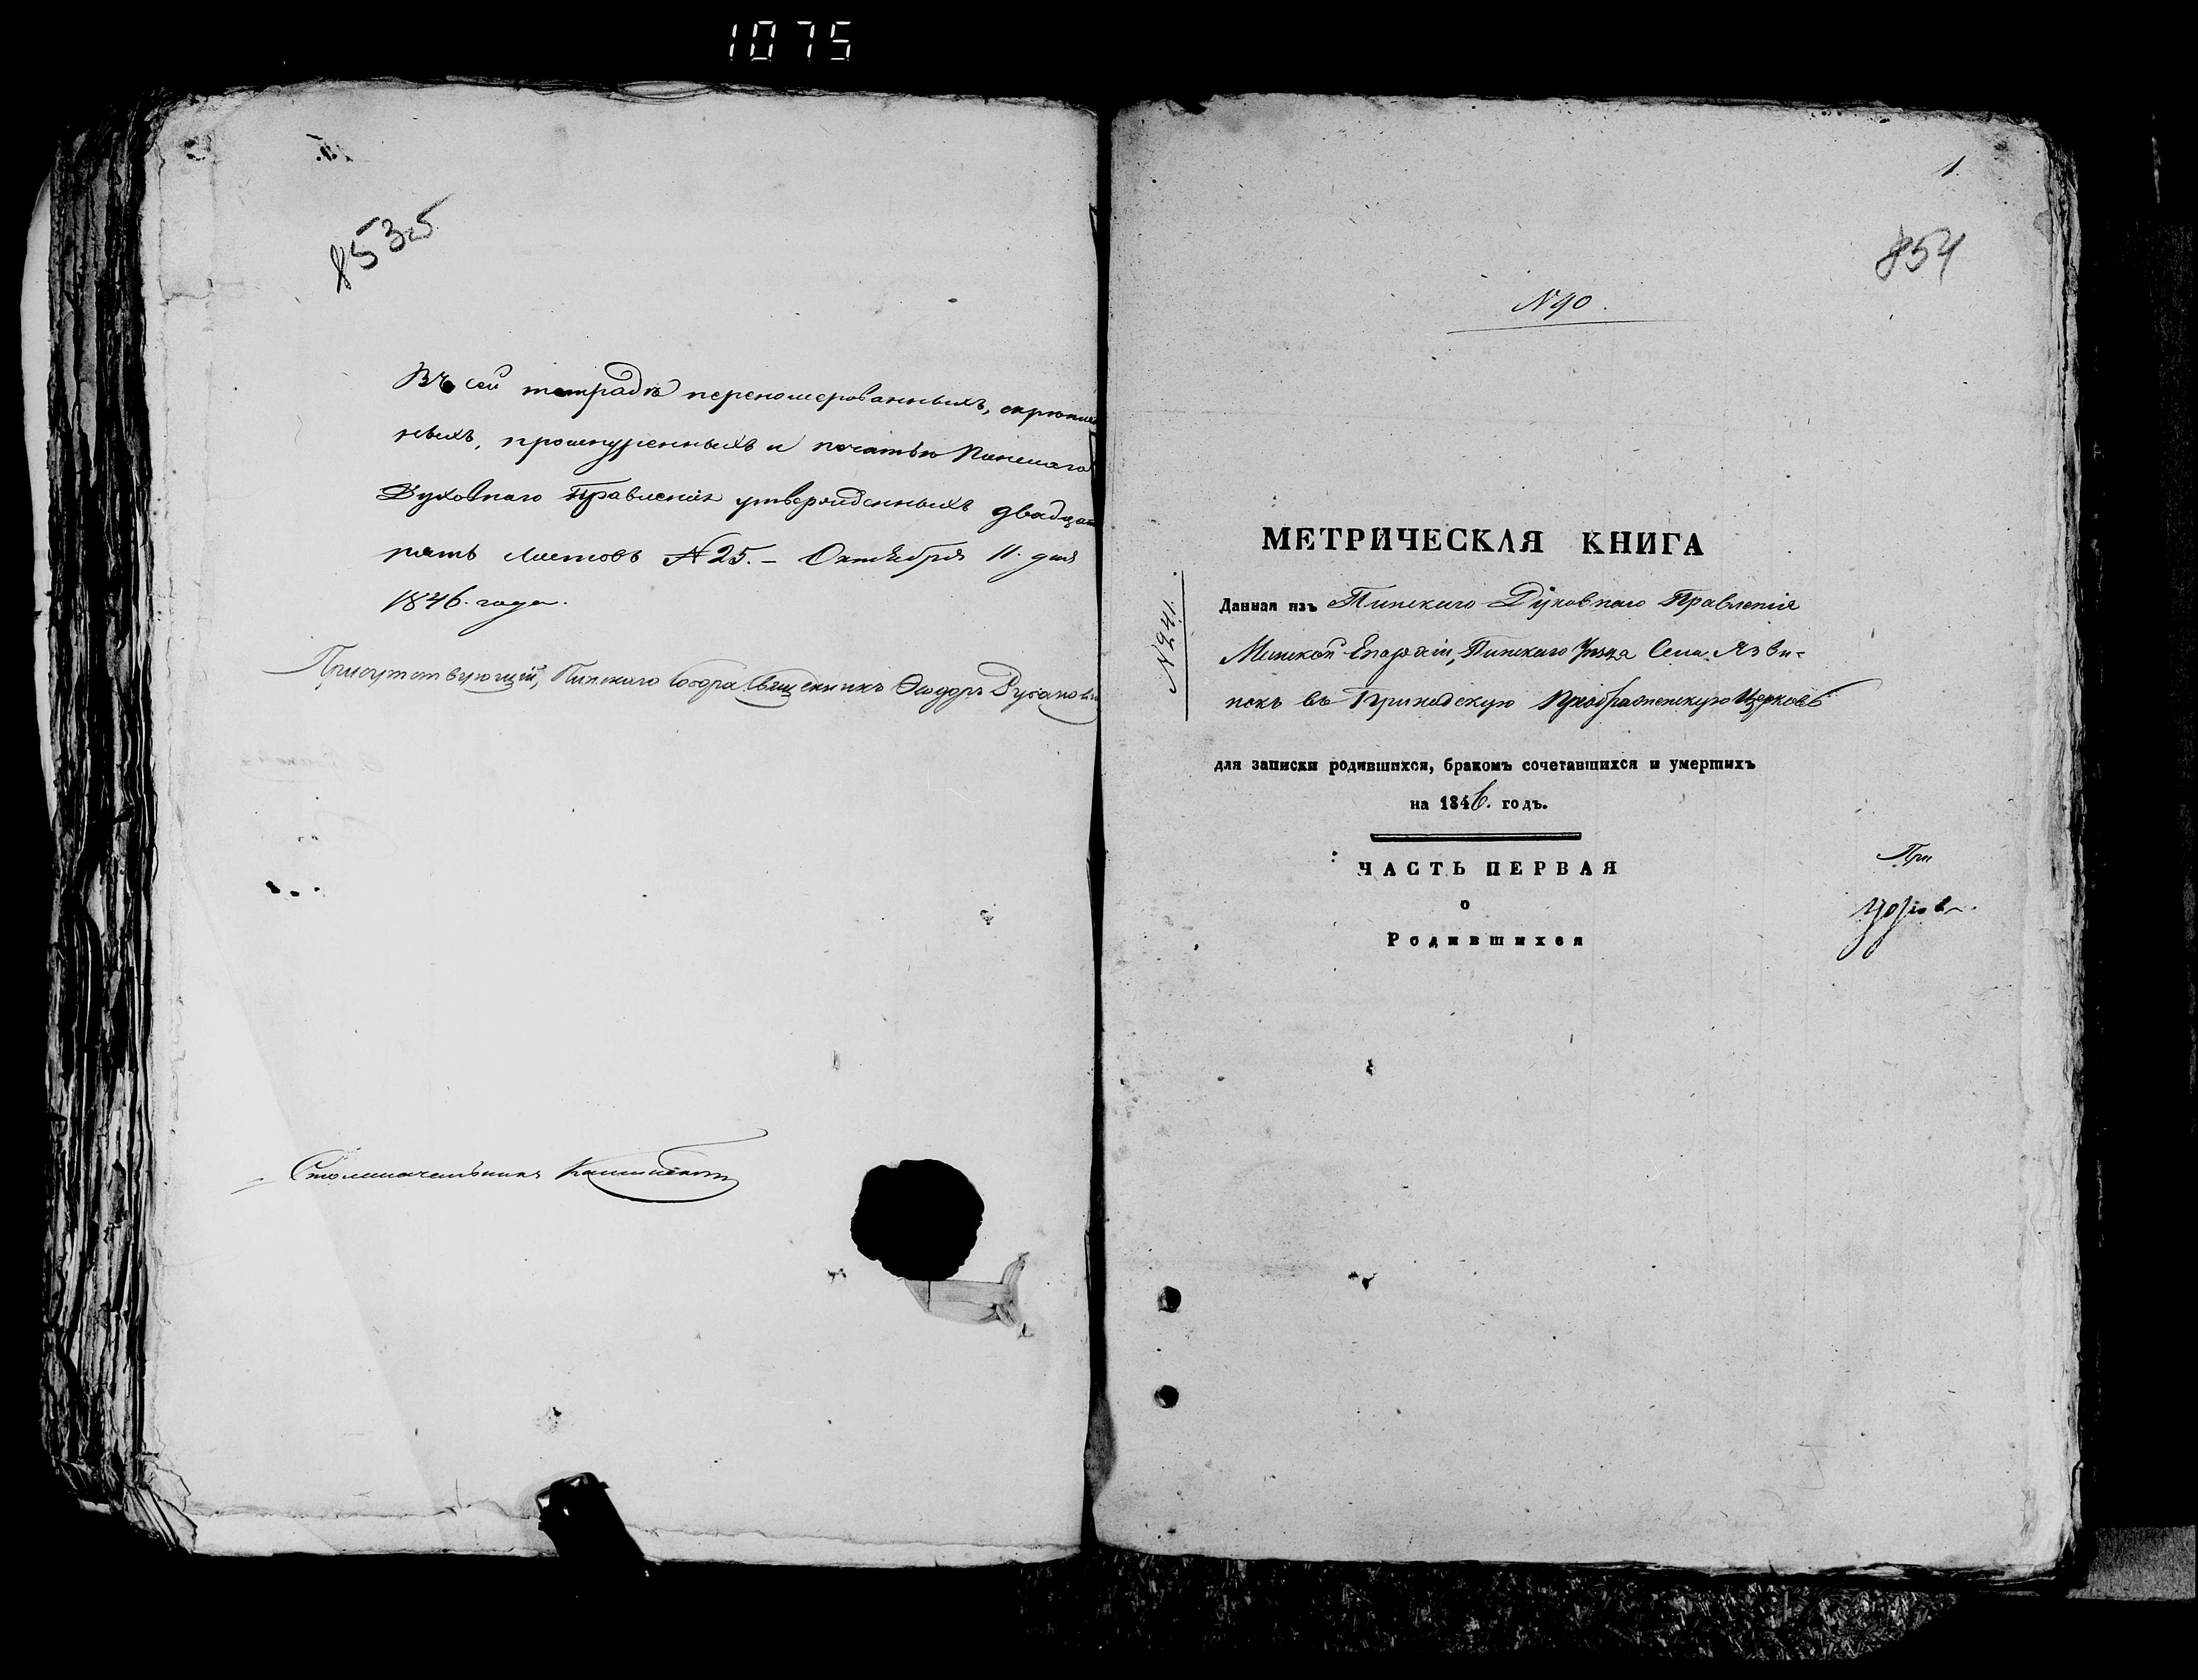 1075
853об
Въ сей тетрадѣ переномерованныхъ, скрѣплен
ныхъ, прошнуренныхъ и печатью Пинскаго
Духовнаго Правленія утвержденныхъ двадцать
пять листовъ № 25. – Октября 11. дня
1846. года.
Присутствующій, Пинскаго Собора Священникъ Ѳеодоръ
Столоначальникъ
1.
854
№ 90.
МЕТРИЧЕСКАЯ КНИГА
Данная изъ Пинскаго Духовнаго Правленія
Минской Епархіи, Пинскаго Уѣзда Села Язви-
нокъ въ Приходскую Преображенскую Церковь
для записки родившихся, бракомъ сочетавшихся и умершихъ
на 1846. годъ.
ЧАСТЬ ПЕРВАЯ
о
Родившихся
При